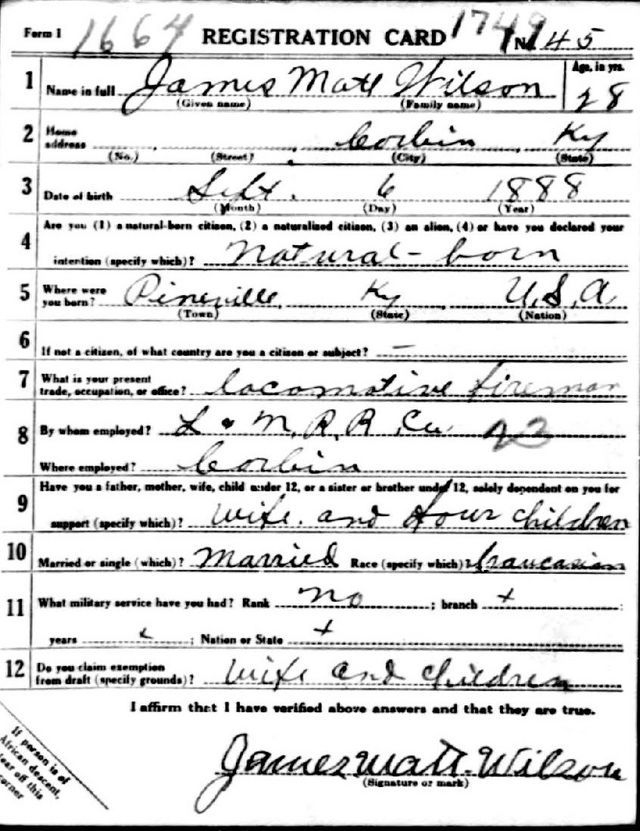 Form 1 1664 REGISTRATION CARD 1749 No 145
1 Name in full James Matt Wilson Age, in yrs. 28
(Given name) (Family name)
2 Home address Corbin Ky
(No.) (Street) (City) (State)
3 Date of birth Sept. 6 1888
(Month) (Day) (Year)
4 Are you (1) a natural-born citizen, (2) a naturalized citizen, (3) an alien, (4) or have you declared your
intention (specify which)? Natural-born
5 Where were you born? Pineville Ky U.S.A
(Town) (State) (Nation)
6 If not a citizen, of what country are you a citizen or subject? —
7 What is your present trade, occupation, or office? locomotive fireman
8 By whom employed? L & N, R, R, Co. 23
Where employed? Corbin
9 Have you a father, mother, wife, child under 12, or a sister or brother under 12, solely dependent on you for
support (specify which)? wife. and four children
10 Married or single (which)? Married Race (specify which)? Caucasian
11 What military service have you had? Rank no ; branch +
years ; Nation or State +
12 Do you claim exemption from draft (specify grounds)? wife and children
I affirm that I have verified above answers and that they are true.
James Matt. Wilson
(Signature or mark)
If person is of
African descent,
tear off this
corner